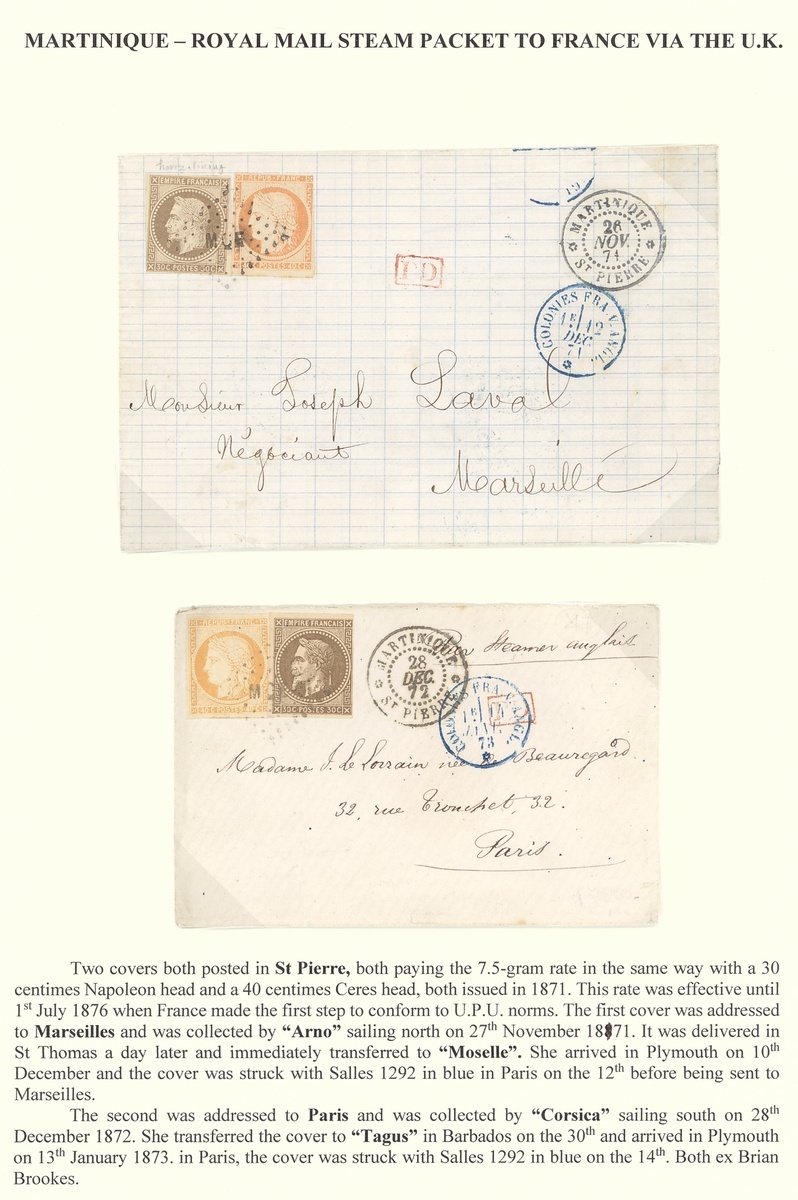 MARTINIQUE – ROYAL MAIL STEAM PACKET TO FRANCE VIA THE U.K.
EMPIRE FRANÇAIS
REPUB · FRANC
30C POSTES 30C
40C POSTES 40C
PD
19
MARTINIQUE
26
NOV.
71
ST PIERRE
COLONIES FRA. V. ANGL.
1E 12
DEC
71
Monsieur Joseph Laval
Négociant
Marseille
REPUB · FRANC
EMPIRE FRANÇAIS
40 C POSTES 40 C
30C POSTES 30C
MARTINIQUE
28
DEC.
72
ST PIERRE
Par Steamer anglais
COLONIES FRA. V. ANGL.
73
Madame J. Le Lorrain née de Beauregard.
32, rue Tronchet, 32.
Paris.
Two covers both posted in St Pierre, both paying the 7.5-gram rate in the same way with a 30
centimes Napoleon head and a 40 centimes Ceres head, both issued in 1871. This rate was effective until
1st July 1876 when France made the first step to conform to U.P.U. norms. The first cover was addressed
to Marseilles and was collected by “Arno” sailing north on 27th November 1871. It was delivered in
St Thomas a day later and immediately transferred to “Moselle”. She arrived in Plymouth on 10th
December and the cover was struck with Salles 1292 in blue in Paris on the 12th before being sent to
Marseilles.
The second was addressed to Paris and was collected by “Corsica” sailing south on 28th
December 1872. She transferred the cover to “Tagus” in Barbados on the 30th and arrived in Plymouth
on 13th January 1873. in Paris, the cover was struck with Salles 1292 in blue on the 14th. Both ex Brian
Brookes.